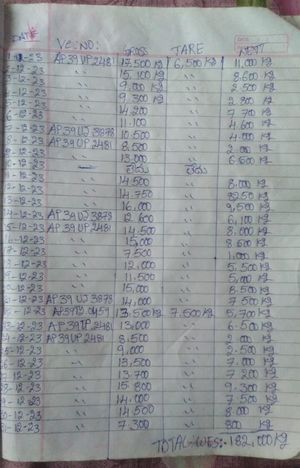 DATE VC.NO: GROSS TARE NETT
1-12-23 AP39UP2481 17,500 Kg 6,500 Kg 11,000 Kg
2-12-23 " 15,100 Kg " 8.600 Kg
3-12-23 " 9,000 Kg " 2,500 Kg
-12-23 " 9,300 Kg " 2,800 Kg
5-12-23 " 14,200 " 7,700 Kg
6-12-23 " 11,100 " 4,600 Kg
-12-23 AP39UJ3873 10,500 " 4,000 Kg
8-12-23 AP39UP2481 8,500 " 2,000 Kg
-12-23 " 13,000 " 6,500 Kg
-12-23 "
-12-23 " 14,500 " 8,000 Kg
-12-23 " 14,750 " 8250 Kg
-12-23 " 16,000 " 9,500 Kg
-12-23 AP39UJ3873 12,600 " 6,100 Kg
-12-23 AP39UP2481 14,500 " 8,000 Kg
-12-23 " 15,000 " 8,500 Kg
-12-23 " 7,500 " 1,000 Kg
-12-23 " 12,000 " 5,500 Kg
-12-23 " 11,500 " 5,000 Kg
-12-23 " 15,000 " 8,500 Kg
-12-23 AP39UJ3873 14,000 " 7,500 Kg
-12-23 13,500 Kg 7,500 Kg 5,700 Kg
-12-23 2481 13,000 " 6,500 Kg
-12-23 AP39UP2481 8,500 " 2,000 Kg
-12-23 " 9,000 " 2,500 Kg
-12-23 " 13,500 " 7,000 Kg
-12-23 " 13,700 " 7,200 Kg
-12-23 " 15,800 " 9,300 Kg
-12-23 " 14,000 " 7,500 Kg
-12-23 " 14,500 " 8,000 Kg
-12-23 " 7,300 " 800 Kg
TOTAL WES:- 182,000 Kg